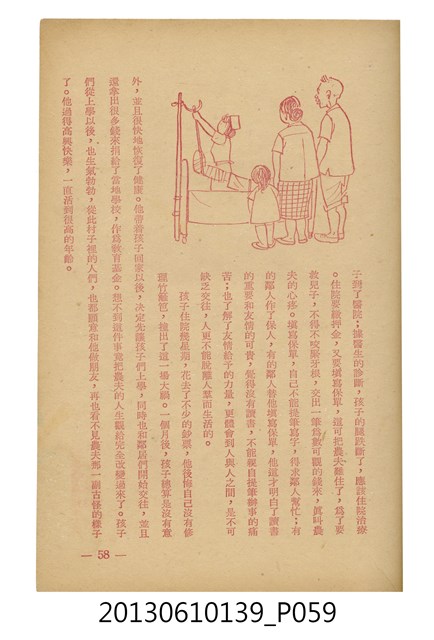 子到了醫院;據醫生的診斷,孩子的腿跌斷了,應該住院治療
。住院要繳押金,又要填寫保單,這可把農夫難住了,爲了要
救兒子,不得不咬緊牙根,交出一筆爲數可觀的錢來,眞叫農
夫的心疼。填寫保單,自己不能提筆寫字,得求鄰人幫忙;有
的鄰人作了保人,有的鄰人替他填寫保單,他這才明白了讀書
的重要和友情的可貴,覺得沒有讀書,不能親自提筆辦事的痛
苦;也了解了友情給予的力量,更體會到人與人之間,是不可
缺乏交往,人更不能脫離人羣而生活的。
孩子住院幾星期,花去了不少的鈔票,他後悔自己沒有修
理竹籬笆,撞出了這一場大禍。一個月後,孩子總算是沒有意
外,並且很快地恢復了健康。他帶着孩子回家以後,決定先讓孩子們上學,同時也和鄰居們開始交往,並且
還拿出很多錢來捐給了當地學校,作爲敎育基金。想不到這件事竟把農夫的人生觀給完全改變過來了。孩子
們從上學以後,也生氣勃勃,從此村子裡的人們,也都願意和他做朋友,再也看不見農夫那一副古怪的樣子
了。他過得高興快樂,一直活到很高的年齡。
— 58 —
20130610139_P059